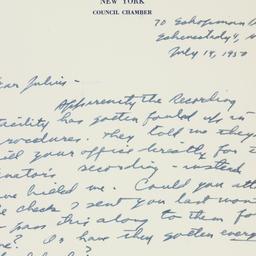 NEW YORK
COUNCIL CHAMBER
70
Schenectady 4, N
July 19, 1950
ear Julius -
Apparently the Recording
acility has gotten fouled up in
rocedures. They told me they
ill your office directly for t
enator's recording - instead
ve billed me. Could you
e check I sent you last mon
pass this along to them fo
e? Or have they gotten